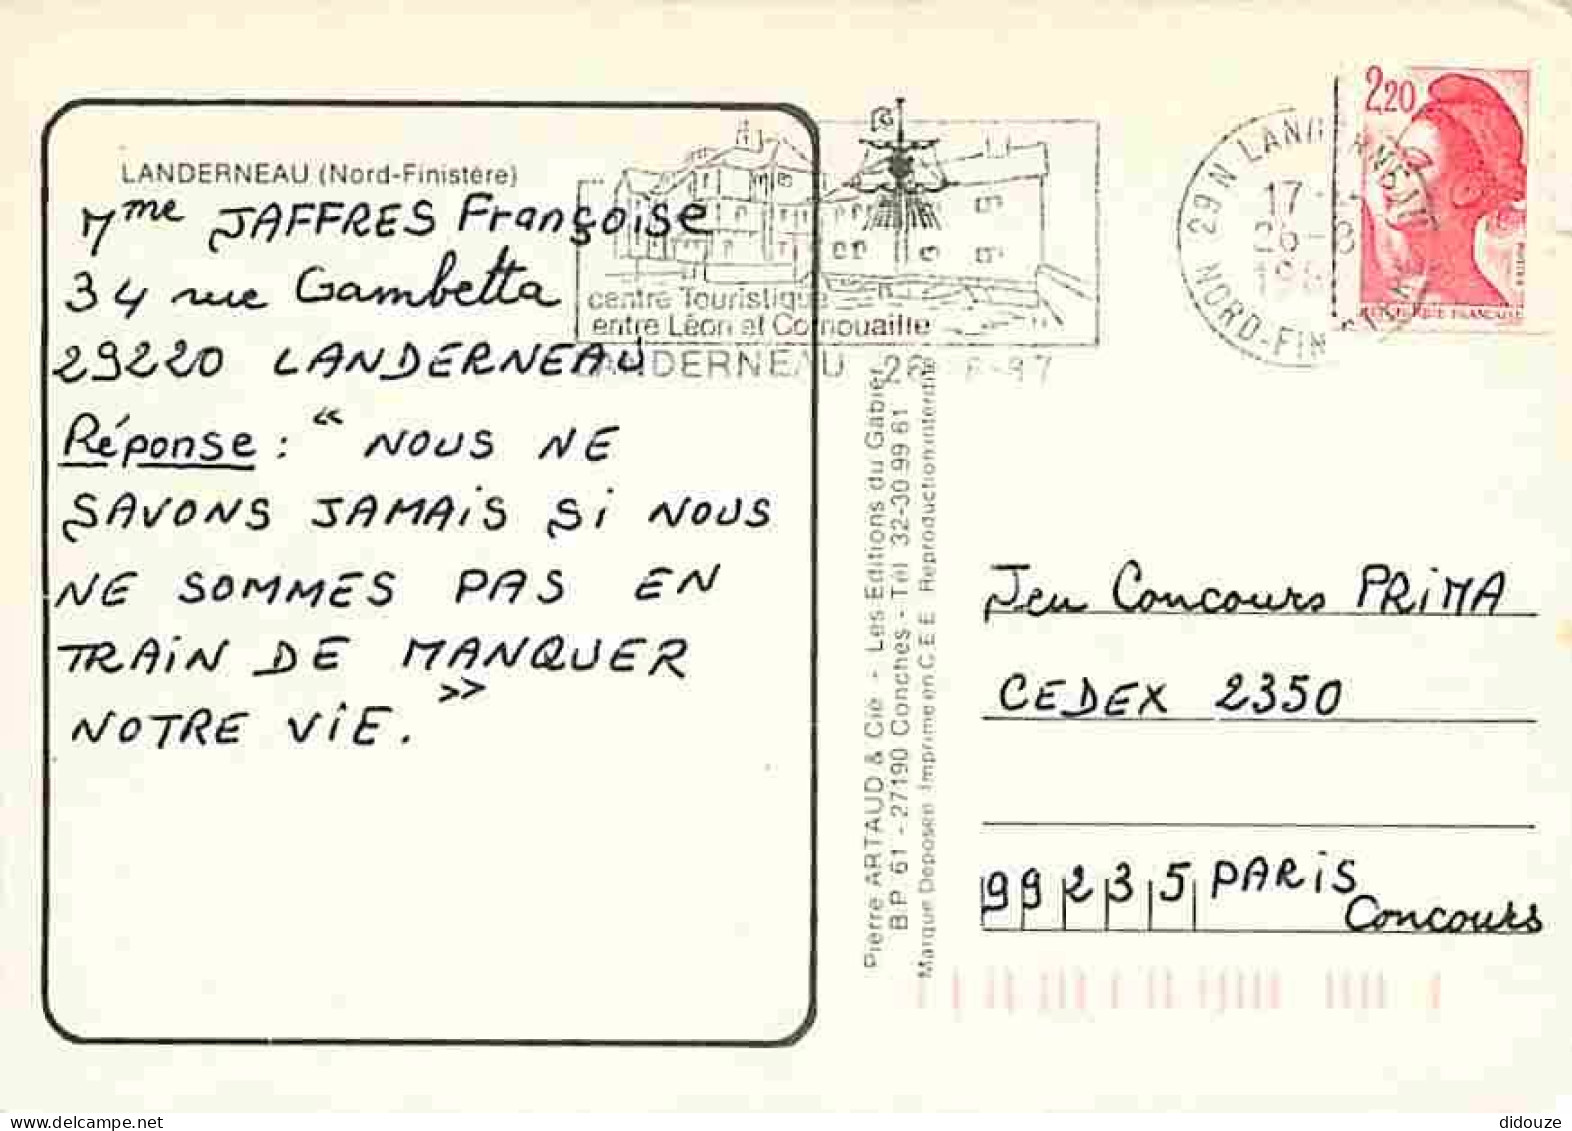 LANDERNEAU (Nord-Finistère)
Mme JAFFRES Françoise
34 rue Gambetta
29220 LANDERNEAU
Réponse : " NOUS NE
SAVONS JAMAIS Si NOUS
NE SOMMES PAS EN
TRAiN DE MANQUER
NOTRE ViE. "
centre Touristique
entre Léon et Cornouaille
LANDERNEAU
29 N LANDERNEAU
NORD-FINISTERE
2,20
REPUBLIQUE FRANÇAISE
Pierre ARTAUD & Cie - Les Editions du Gabier
B.P. 61 - 27190 Conches - Tél 32-30 99 61
Marque Déposée Imprimé en C E E Reproduction interdite
Jeu Concours PRiMA
CEDEX 2350
99235 PARiS
Concours
didouze